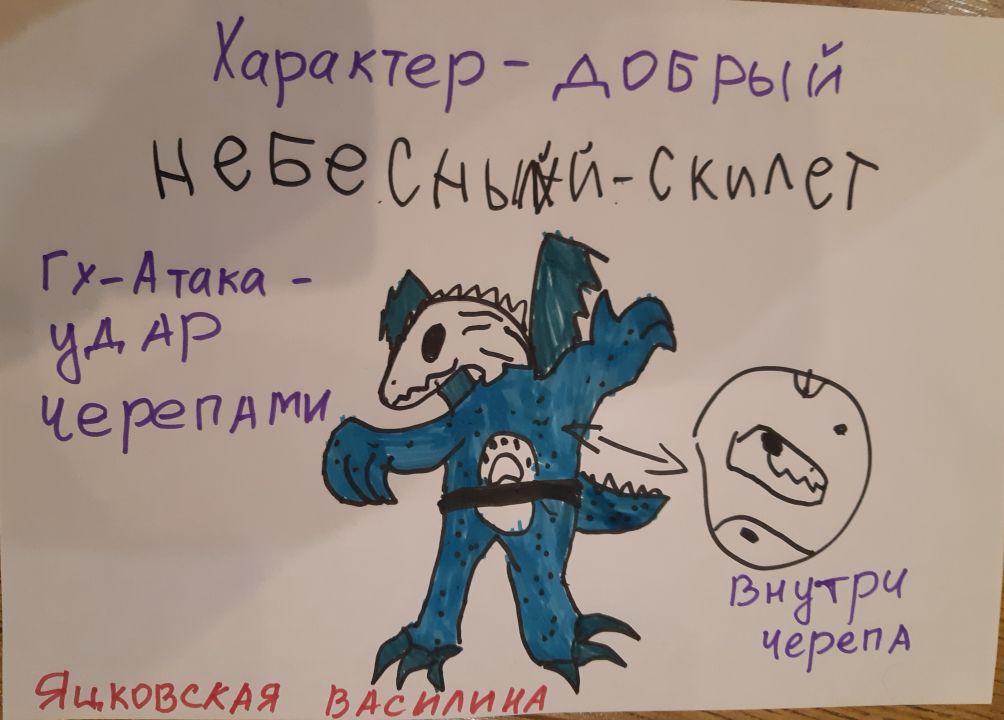 Характер - добрый
Небесный-скилет
Гх-Атака -
удар
черепами
Внутри
черепа
Яцковская Василина